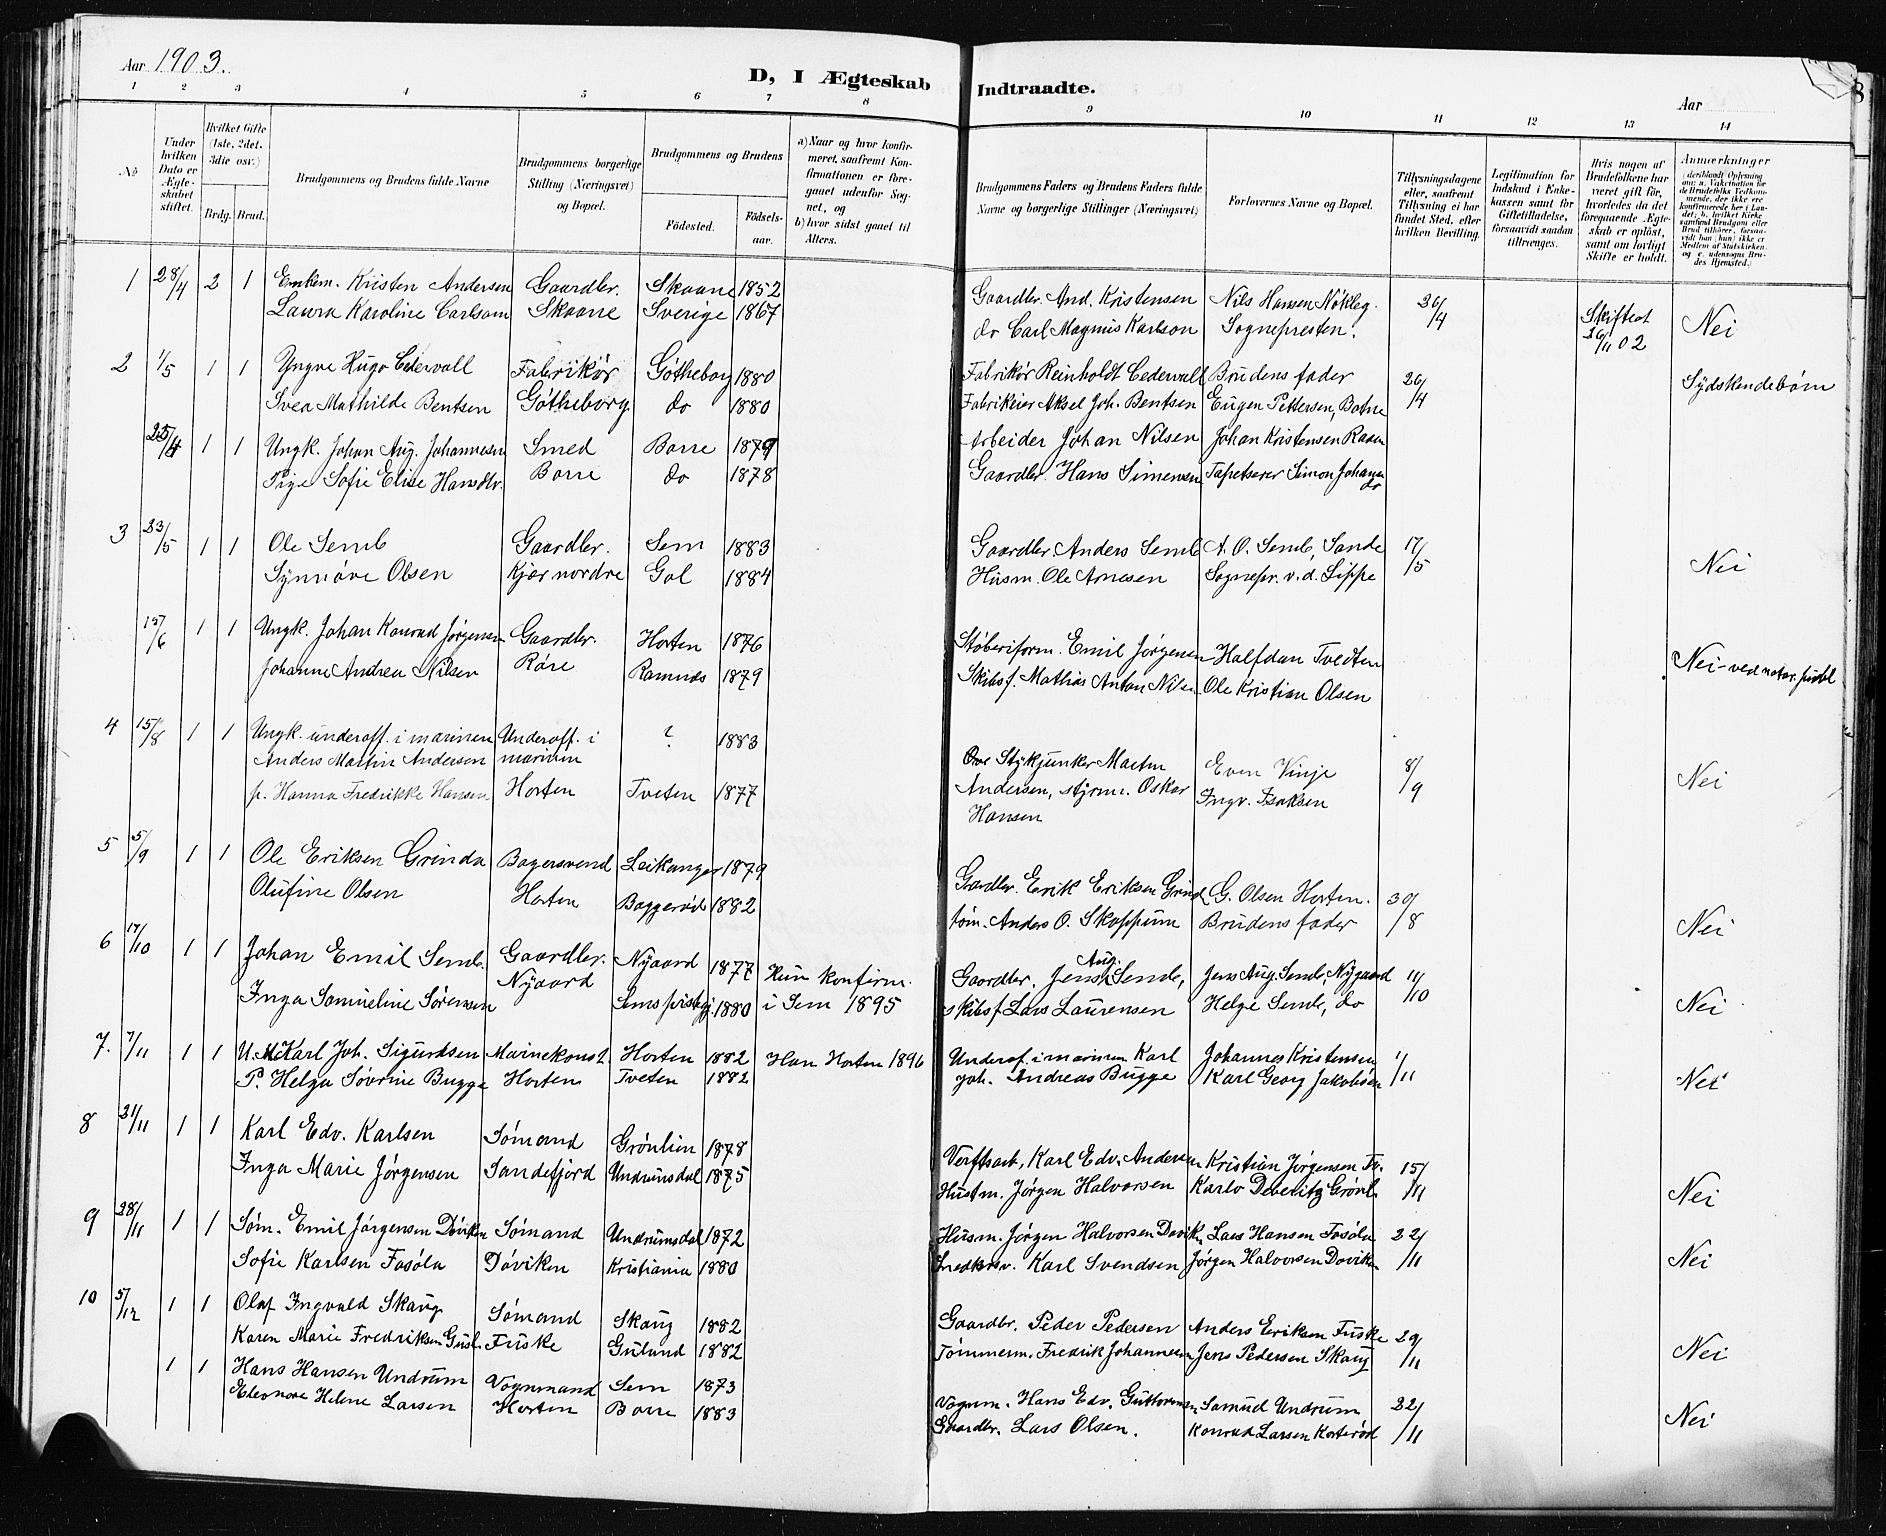 Aar 1903.
D, I Ægteskab Indtraadte.
Aar
1 2 3 4 5 6 7 8 9 10 11 12 13 14
No
Under hvilken Dato er Ægteskabet stiftet.
Hvilket Gifte (1ste, 2det, 3die osv.)
Brdg. Brud.
Brudgommens og Brudens fulde Navne
Brudgommens borgerlige Stilling (Næringsvei) og Bopæl.
Brudgommens og Brudens
Födested. Födselsaar.
a) Naar og hvor konfirmeret, saafremt Konfirmationen er foregaaet udenfor Sognet, og
b) hvor sidst gaaet til Alters.
Brudgommens Faders og Brudens Faders fulde Navne og borgerlige Stillinger (Næringsvei)
Forlovernes Navne og Bopæl.
Tillysningsdagene eller, saafremt Tillysning ei har fundet Sted, efter hvilken Bevilling.
Legitimation for Indskud i Enkekassen samt for Giftetilladelse, forsaavidt saadan tiltrænges.
Hvis nogen af Brudefolkene har været gift för, hvorledes da det foregaaende Ægteskab er oplöst, samt om lovligt Skifte er holdt.
Anmærkninger (deriblandt Oplysning om: a. Vakcination for de Brudefolks Vedkommende, der ikke ere konfirmerede her i Landet; b. hvilket Kirkesamfund Brudgom eller Brud tilhører, forsaavidt han (hun) ikke er Medlem af Statskirken, og c. udensogns Brudes Hjemsted.)
1 28/4 2 1 Enkem. Kristen Andersen Gaardbr. Skaane 1852 Gaardbr. And. Kristensen Nils Hansen Nökleg. 26/4 Skiftet Nei
Laura Karoline Carlsson Skaane Sverige 1867 do Carl Magnus Karlson Sognepresten. 26/11 02
2 1/5 1 1 Yngve Hugo Cedervall Fabrikör Götheborg 1880 Fabrikör Reinholdt Cedervall Brudens fader 26/4 Sydskendebörn
Svea Mathilde Bentsen Götheborg do 1880 Fabrikeier Aksel Joh. Bentsen Eugen Pettersen, Botne
25/4 1 1 Ungk. Johan Aug. Johannesen Smed Borre 1879 Arbeider Johan Nilsen Johan Kristensen Raaen
Pige Sofie Elise Hansdtr. Borre do 1878 Gaardbr. Hans Simensen Tapetserer Simon Johansen do
3 23/5 1 1 Ole Semb Gaardbr. Sem 1883 Gaardbr. Anders Semb A. O. Semb, Sande 17/5 Nei
Synnöve Olsen Kjær nordre Gol 1884 Husm. Ole Arnesen Sognepr. v. d. Lippe
15/6 1 1 Ungk. Johan Konrad Jörgensen Gaardbr. Horten 1876 Stöberiform. Emil Jörgensen Halfdan Tvedten Nei - ved notar. publ
Johanne Andrea Nilsen Röre Ramnæs 1879 Skibsf. Mathias Anton Nilsen Ole Kristian Olsen
4 15/8 1 1 Ungk. underoff. i marinen Underoff. i ? 1883 Ove Stykjunker Martin Even Vinje 8/9 Nei
Anders Martin Andersen marinen Andersen, styrm. Oskar Ingv. Isaksen
p. Hanna Fredrikke Hansen Horten Tveten 1877 Hansen
5 5/9 1 1 Ole Eriksen Grinda Bagersvend Leikanger 1879 Gaardbr. Erik Eriksen Grinda G. Olsen Horten. 30/8 Nei
Olufine Olsen Horten Baggeröd 1882 töm. Anders O. Skoppum Brudens fader
6 17/10 1 1 Johan Emil Semb. Gaardbr. Nyaard 1877 Hun konfirm. Gaardbr. Jens Aug. Semb, Jens Aug. Semb, Nygaard 11/10 Nei
Inga Samueline Sörensen Nyaard Sems prestegj. 1880 i Sem 1895 skibsf. Lars Laurensen Helge Semb, do
7. 7/11 1 1 U.M. Karl Joh. Sigurdsen Marinekonst. Horten 1882 Han Horten 1896 Underof. i marinen Karl Johannes Kristensen 1/11 Nei
P. Helga Sövrine Bugge Horten Tveten 1882 Joh. Andreas Bugge Karl Georg Jakobsen
8 21/11 1 1 Karl Edv. Karlsen Sömand Grönlien 1878 Verftsarb. Karl Edv. Andersen Kristian Jörgensen Tv. 15/11 Nei
Inga Marie Jörgensen Sandefjord Undrumsdal 1875 Husm. Jörgen Halvorsen Karlo Deberitz Grönl.
9 28/11 1 1 Söm. Emil Jörgensen Döviken Sömand Undrumsdal 1872 Husm. Jörgen Halvorsen Dövik. Lars Hansen Fosöla 22/11 Nei
Sofie Karlsen Fosöla Döviken Kristiania 1880 Snedkersv. Karl Svendsen Jörgen Halvorsen Döviken
10 5/12 1 1 Olaf Ingvald Skaug Sömand Skaug 1882 Gaardbr. Peder Pedersen Anders Eriksen Fuske 29/11 Nei
Karen Marie Fredriksen Gusl. Fuske Gulund 1882 Tömmerm. Fredrik Johannesen Jens Pedersen Skaug
1 1 Hans Hansen Undrum Vognmand Sem 1873 Vognm. Hans Edv. Guttormsen Samuel Undrum 22/11 Nei
Eleonore Helene Larsen Horten Borre 1883 Gaardbr. Lars Olsen. Konrad Larsen Korteröd